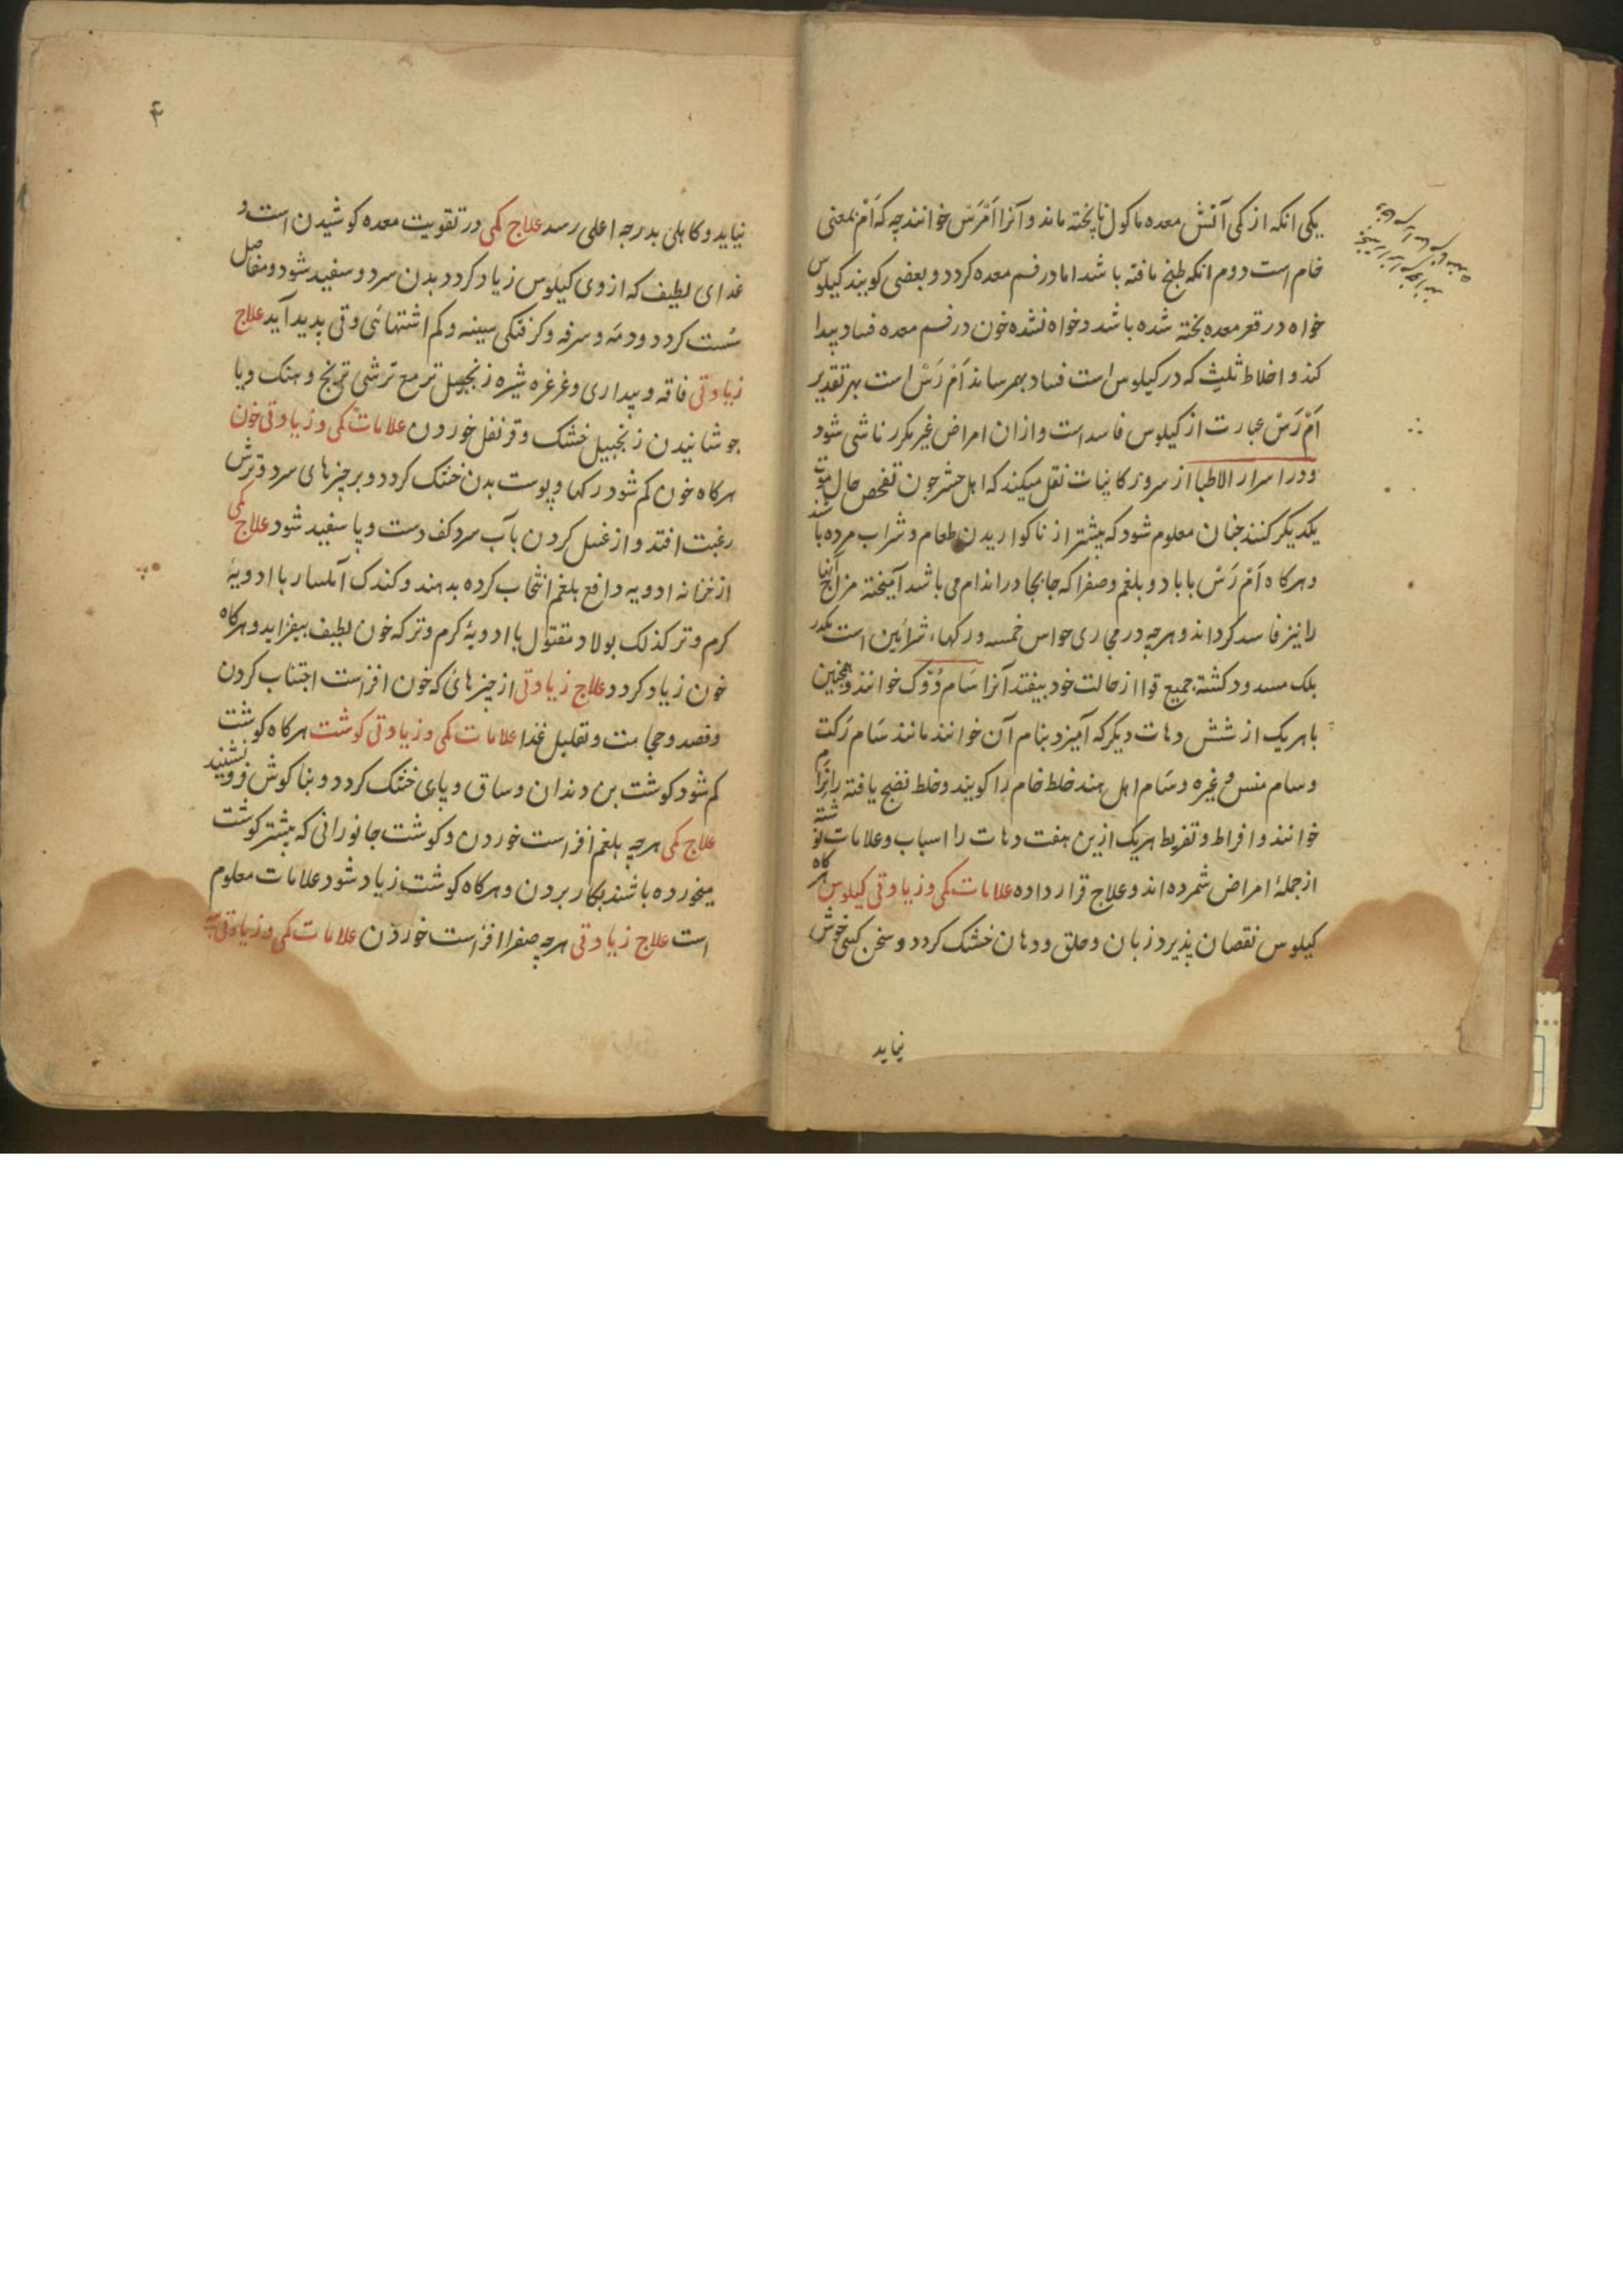 یکی انکه از کمی آتش معده ماکول ناپخته ماند و آنرا اَمْ رَسْ خوانند چه که اَمْ بمعنی
خام است دوم انکه طبخ یافته باشد اما در فم معده کردد و بعضی کویند کیلوس
خواه در قعر معده پخته شده باشد و خواه نشده خون در فم معده فساد پیدا
کند و اخلاط ثلیث که در کیلوس است فساد بهمرساند اَمْ رَسْ است بهر تقدیر
اَمْ رَسْ عبارت از کیلوس فاسد است و ازان امراض غیر مکرر ناشی شود
و در اسرار الاطبا از سرور کاینات نقل میکند که اهل حشر چون تفحص حال موت
یکدیکر کنند چنان معلوم شود که بیشتر از ناکواریدن طعام و شراب مرده باشند
و هرکاه اَمْ رَسْ با باد و بلغم و صفرا که جابجا در اندام می باشد آمیخته مزاج آنها
را نیز فاسد کرداند و هرچه در مجاری حواس خمسه و رکها، شرائین است مکدر
بلک مسدود کشته جمیع قوا از حالت خود بیفتد آنرا سَام دُوک خوانند و همچنین
باهریک از شش دهات دیکر که آمیزد بنام آن خوانند مانند سَام رَکت
و سام منس و غیره و سَام اهل هند خلط خام را کویند و خلط نضج یافته را نِرَام
خوانند و افراط و تفریط هریک ازین هفت دهات را اسباب و علامات نوشته
از جملهٔ امراض شمرده اند و علاج قرار داده علامات کمی و زیادتی کیلوس هرکاه
کیلوس نقصان پذیرد زبان و حلق و دهان خشک کردد و سخن کسی خوش
نیاید
۴
نیاید و کاهلی بدرجه اعلی رسد علاج کمی در تقویت معده کوشیدن است و
غدای لطیف که از وی کیلوس زیاد کردد بدن سرد و سفید شود و مفاصل
سُست کردد و دمه و سرفه و کرفتکی سینه و کم اشتهائی و قی پدید آید علاج
زیادتی فاقه و بیداری و غرغره شیره زنجبیل تر مع ترشی ترنج و هنک و یا
جوشانیدن زنجبیل خشک و قرنفل خوردن علامات کمی و زیادتی خون
هرکاه خون کم شود رکها و پوست بدن خشک کردد و بر چیزهای سرد و ترش
رغبت افتد و از غسل کردن بآب سرد کف دست و پا سفید شود علاج کمی
از خزانه ادویه دافع بلغم انتخاب کرده بدهند و کندک آملسار با ادویهٔ
کرم و تر کذلک بولاد مقتول با ادویهٔ کرم و تر که خون لطیف بیفزاید و هرکاه
خون زیاد کردد علاج زیادتی از چیزهائ که خون افزاست اجتناب کردن
و فصد و حجامت و تقلیل غذا علامات کمی و زیادتی کوشت هرکاه کوشت
کم شود کوشت بن دندان و ساق و پای خشک کردد و بناکوش فرو نشیند
علاج کمی هرچه بلغم افزاست خوردن و کوشت جانورانی که بیشتر کوشت
میخورده باشند بکار بردن و هرکاه کوشت زیاد شود علامات معلوم
است علاج زیادتی هرچه صفرا افزاست خوردن علامات کمی و زیادتی پیه